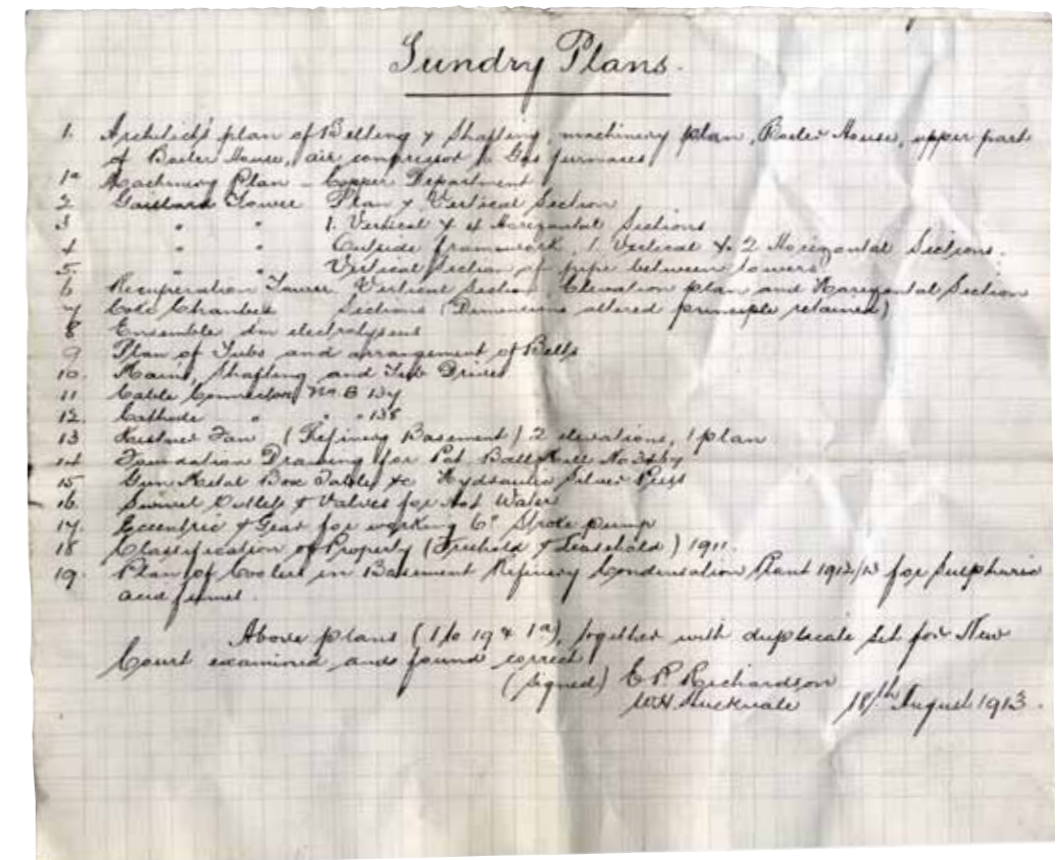 Sundry Plans.
1. Architect's plan of Belting & Shafting, machinery plan, Boiler House, upper part
of Boiler House, air compressor & Gas furnaces
1a Machinery Plan - Copper Department
2 Gaillard Tower Plan & Vertical Section
3 " " 1 Vertical & 4 Horizontal Sections
4 " " Outside framework, 1 Vertical & 2 Horizontal Sections.
5. " " Vertical Section of pipe between towers
6 Recuperation Tower Vertical Section, Elevation plan and Horizontal Section
7 Coke Chamber Sections (Dimensions altered principle retained)
8 Ensemble electrolyseur
9 Plan of Tubs and arrangement of Belts
10. Mains, Shafting and Tub Drives
11 Cable Connectors No. B 137
12. Cathode " " 138
13 Kestner Fan (Refinery Basement) 2 elevations, 1 plan
14 Foundation Drawing for Pat. Ball Mill No
15 Gun Metal Box Table &c Hydraulic Silver Press
16. Swivel Outlets & Valves for Hot Water
17. Eccentric & Gear for working 6" Stroke pump
18 Classification of Property (Freehold & Leasehold) 1911.
19. Plan of Coolers in Basement Refinery Condensation Plant 1912/13 for Sulphuric
acid funnel.
Above plans (1 to 19 & 1a), together with duplicate set for New
Court examined and found correct
(signed) E P Richardson
W.H. 18th August 1913.